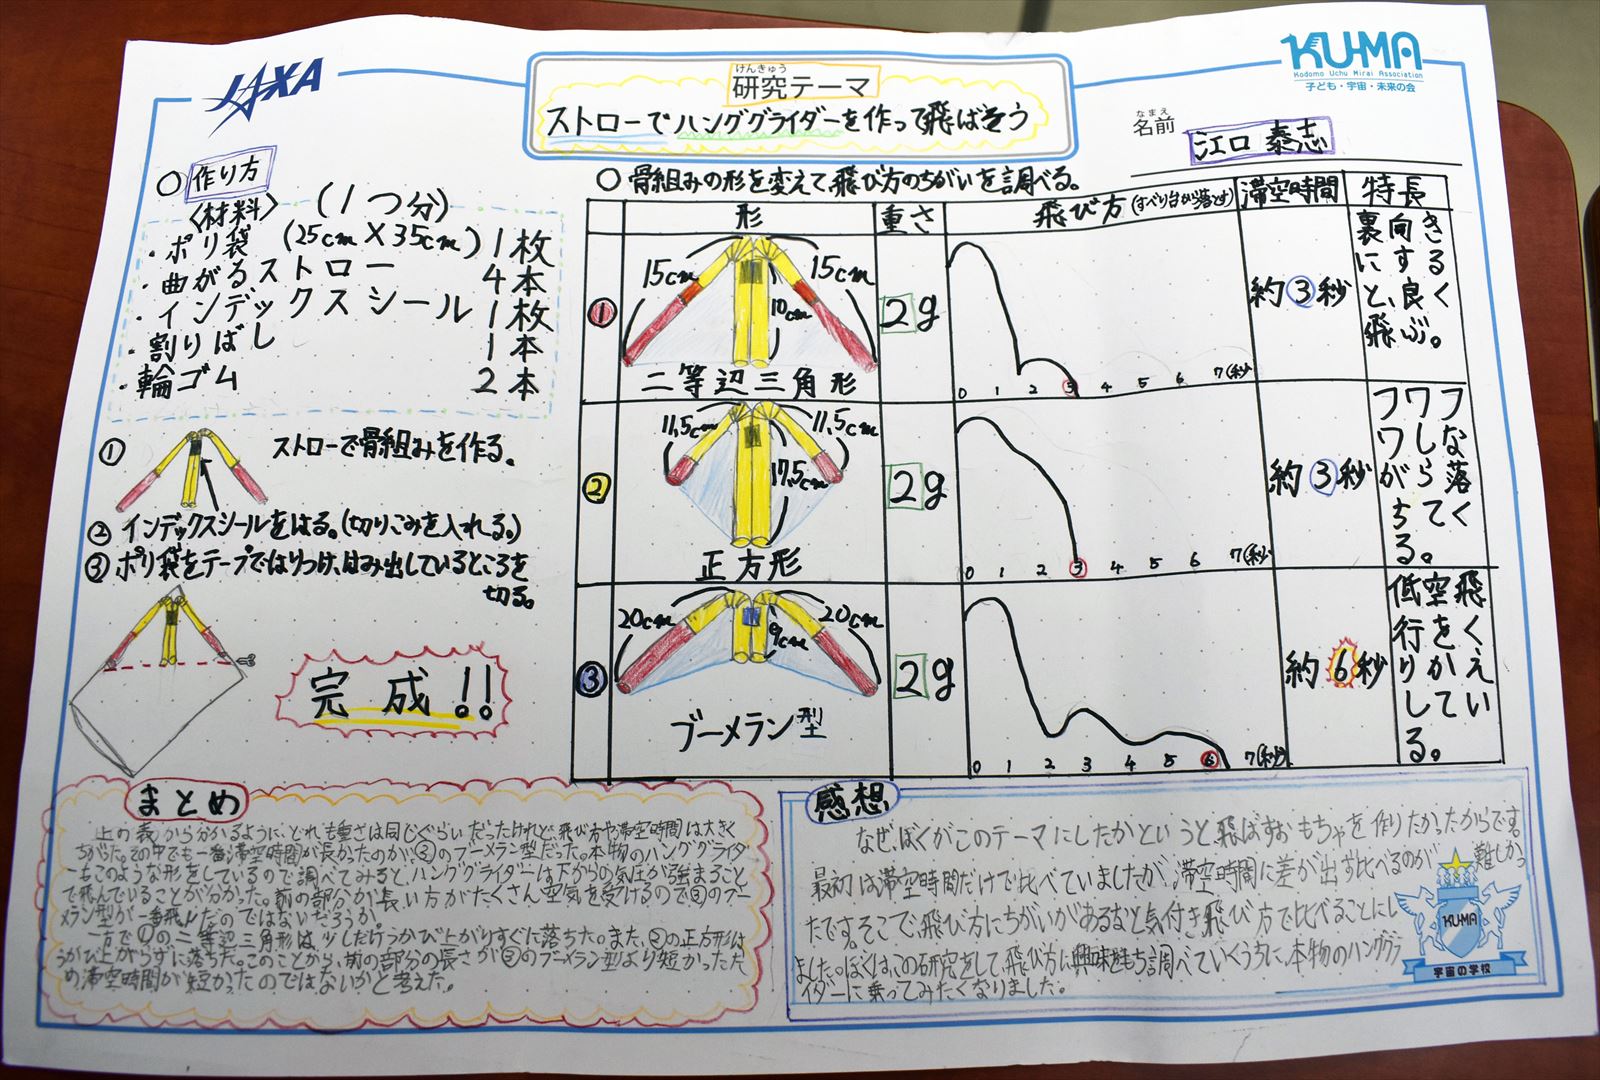 JAXA
けんきゅう
研究テーマ
ストローでハンググライダーを作って飛ばそう
KU-MA
Kodomo Uchu Mirai Association
子ども・宇宙・未来の会
なまえ
名前
江口 泰志
○作り方
〈材料〉(1つ分)
・ポリ袋 (25cm×35cm) 1枚
・曲がるストロー 4本
・インデックスシール 1枚
・割りばし 1本
・輪ゴム 2本
① ストローで骨組みを作る。
② インデックスシールをはる。(切りこみを入れる。)
③ ポリ袋をテープではりつけ、はみ出しているところを
切る。
完成!!
○骨組みの形を変えて、飛び方のちがいを調べる。
形 重さ 飛び方(すべり台から落とす) 滞空時間 特長
① 15cm 15cm 10cm
二等辺三角形
2g
0 1 2 3 4 5 6 7(秒)
約3秒
裏向きにすると、良く飛ぶ。
② 11.5cm 11.5cm 17.5cm
正方形
2g
0 1 2 3 4 5 6 7(秒)
約3秒
フワフワしながら落ちてくる。
③ 20cm 20cm 9cm
ブーメラン型
2g
0 1 2 3 4 5 6 7(秒)
約6秒
低空飛行をくりかえしている。
まとめ
上の表から分かるように、どれも重さは同じぐらいだったけれど、飛び方や滞空時間は大きく
ちがった。その中でも一番滞空時間が長かったのが、③のブーメラン型だった。本物のハンググライダ
ーもこのような形をしているので調べてみると、ハンググライダーは下からの気圧が強まること
で飛んでいることが分かった。前の部分が長い方がたくさん空気を受けるので③のブー
メラン型が一番飛んだのではないだろうか。
一方で①の二等辺三角形は、少しだけうかび上がりすぐに落ちた。また、②の正方形は
うかび上がらずに落ちた。このことから、前の部分の長さが③のブーメラン型より短かったた
め滞空時間が短かったのではないかと考えた。
感想
なぜ、ぼくがこのテーマにしたかというと、飛ばすおもちゃを作りたかったからです。
最初は滞空時間だけで比べていましたが、滞空時間に差が出ず比べるのが難しかっ
たです。そこで、飛び方にちがいがあるなと気付き飛び方で比べることにし
ました。ぼくは、この研究をして、飛び方に興味をもち調べていくうちに、本物のハンググラ
イダーに乗ってみたくなりました。
KU-MA
宇宙の学校